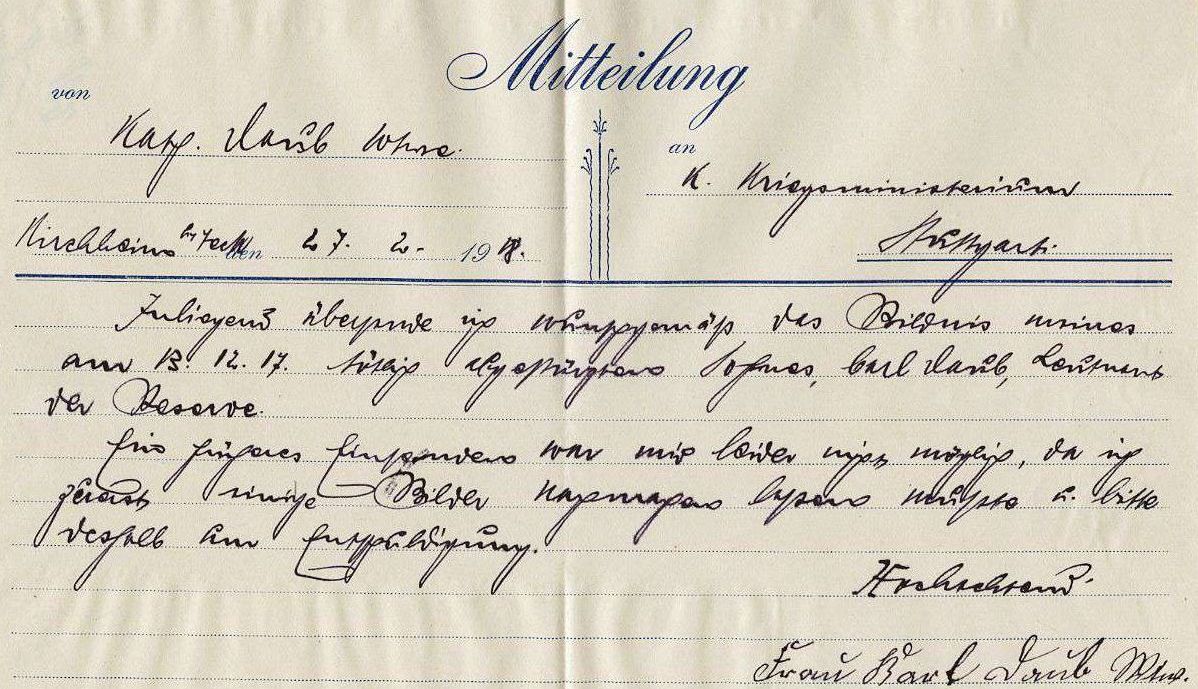 Mitteilung
von
Karl Daub Witwe.
an
K. Kriegsministerium
Kirchheim u/Teck den 27. 2. 1918.
Stuttgart.
Inliegend übersende ich wunschgemäß das Bildnis meines
am 13. 12. 17. tötlich abgestürzten Sohnes, Carl Daub, Leutnant
der Reserve.
Ein früheres Einsenden war mir leider nicht möglich, da ich
zuerst einige Bilder nachmachen lassen mußte u. bitte
deshalb um Entschuldigung.
Hochachtend
Frau Karl Daub Wtw.